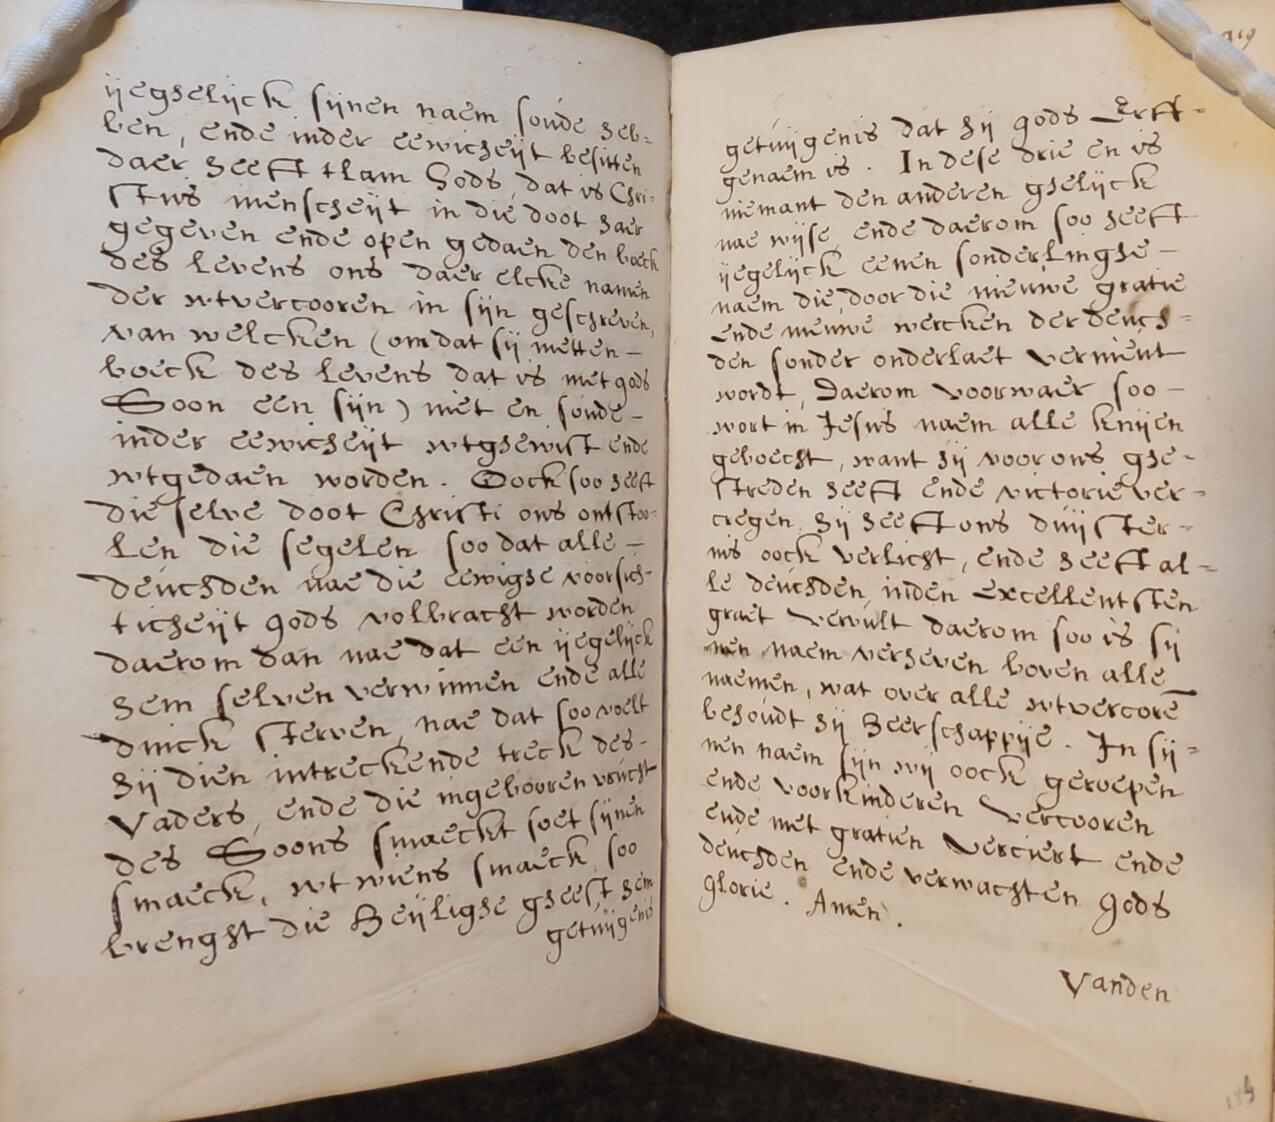 ijeghelijck sijnen naem soude heb=
ben, ende inder eewicheijt besitten
daer heeft tlam Gods, dat is Chri=
stus menscheijt in die doot haer
gegeven ende open gedaen den boeck
des levens ons daer elcke namen
der wtvercooren in sijn geschreven,
van welcken (om dat sij metten –
boeck des levens dat is met gods
Soon een sijn) niet en soude –
inder eewicheijt wtghewist ende
wtgedaen worden. Oock soo heeft
die selve doot Christi ons ontsloo=
len die segelen soo dat alle –
deuchden nae die eewighe voorsich-
ticheijt gods volbracht worden
daerom dan nae dat een ijegelijck
hem selven verwinnen ende alle
dinck sterven, nae dat soo voelt
hij dien intreckende treck des-
Vaders, ende die ingebooren vrucht
des Soons smaeckt soet sijnen
smaeck, wt wiens smaeck soo
brenght die Heijlighe gheest hem
getuijgenis
getuijgenis dat hij gods Erff=
genaem is. In dese drie en is
niemant den anderen ghelijck
nae wijse, ende daerom soo heeft
ijegelijck eenen sonderlinghe –
naem die door die nieuwe gratie
ende nieuwe wercken der deuch=
den sonder onderlaet vernieut
wordt, Daerom voorwaer soo –
wort in Jesus naem alle knijen
geboecht, want hij voor ons ghe=
streden heeft ende victorie ver=
cregen, hij heeft ons duijster=
nis oock verlicht, ende heeft al=
le deuchden inden excellentsten
graet vervult daerom soo is sij
nen naem verheven boven alle
naemen, wat over alle wtvercorē
behoudt hij Heerschappije. In sij=
nen naem sijn wij oock geroepen
ende voor kinderen vercooren
ende met gratien verciert ende
deuchden ende verwachten gods
glorie. Amen.
Vanden